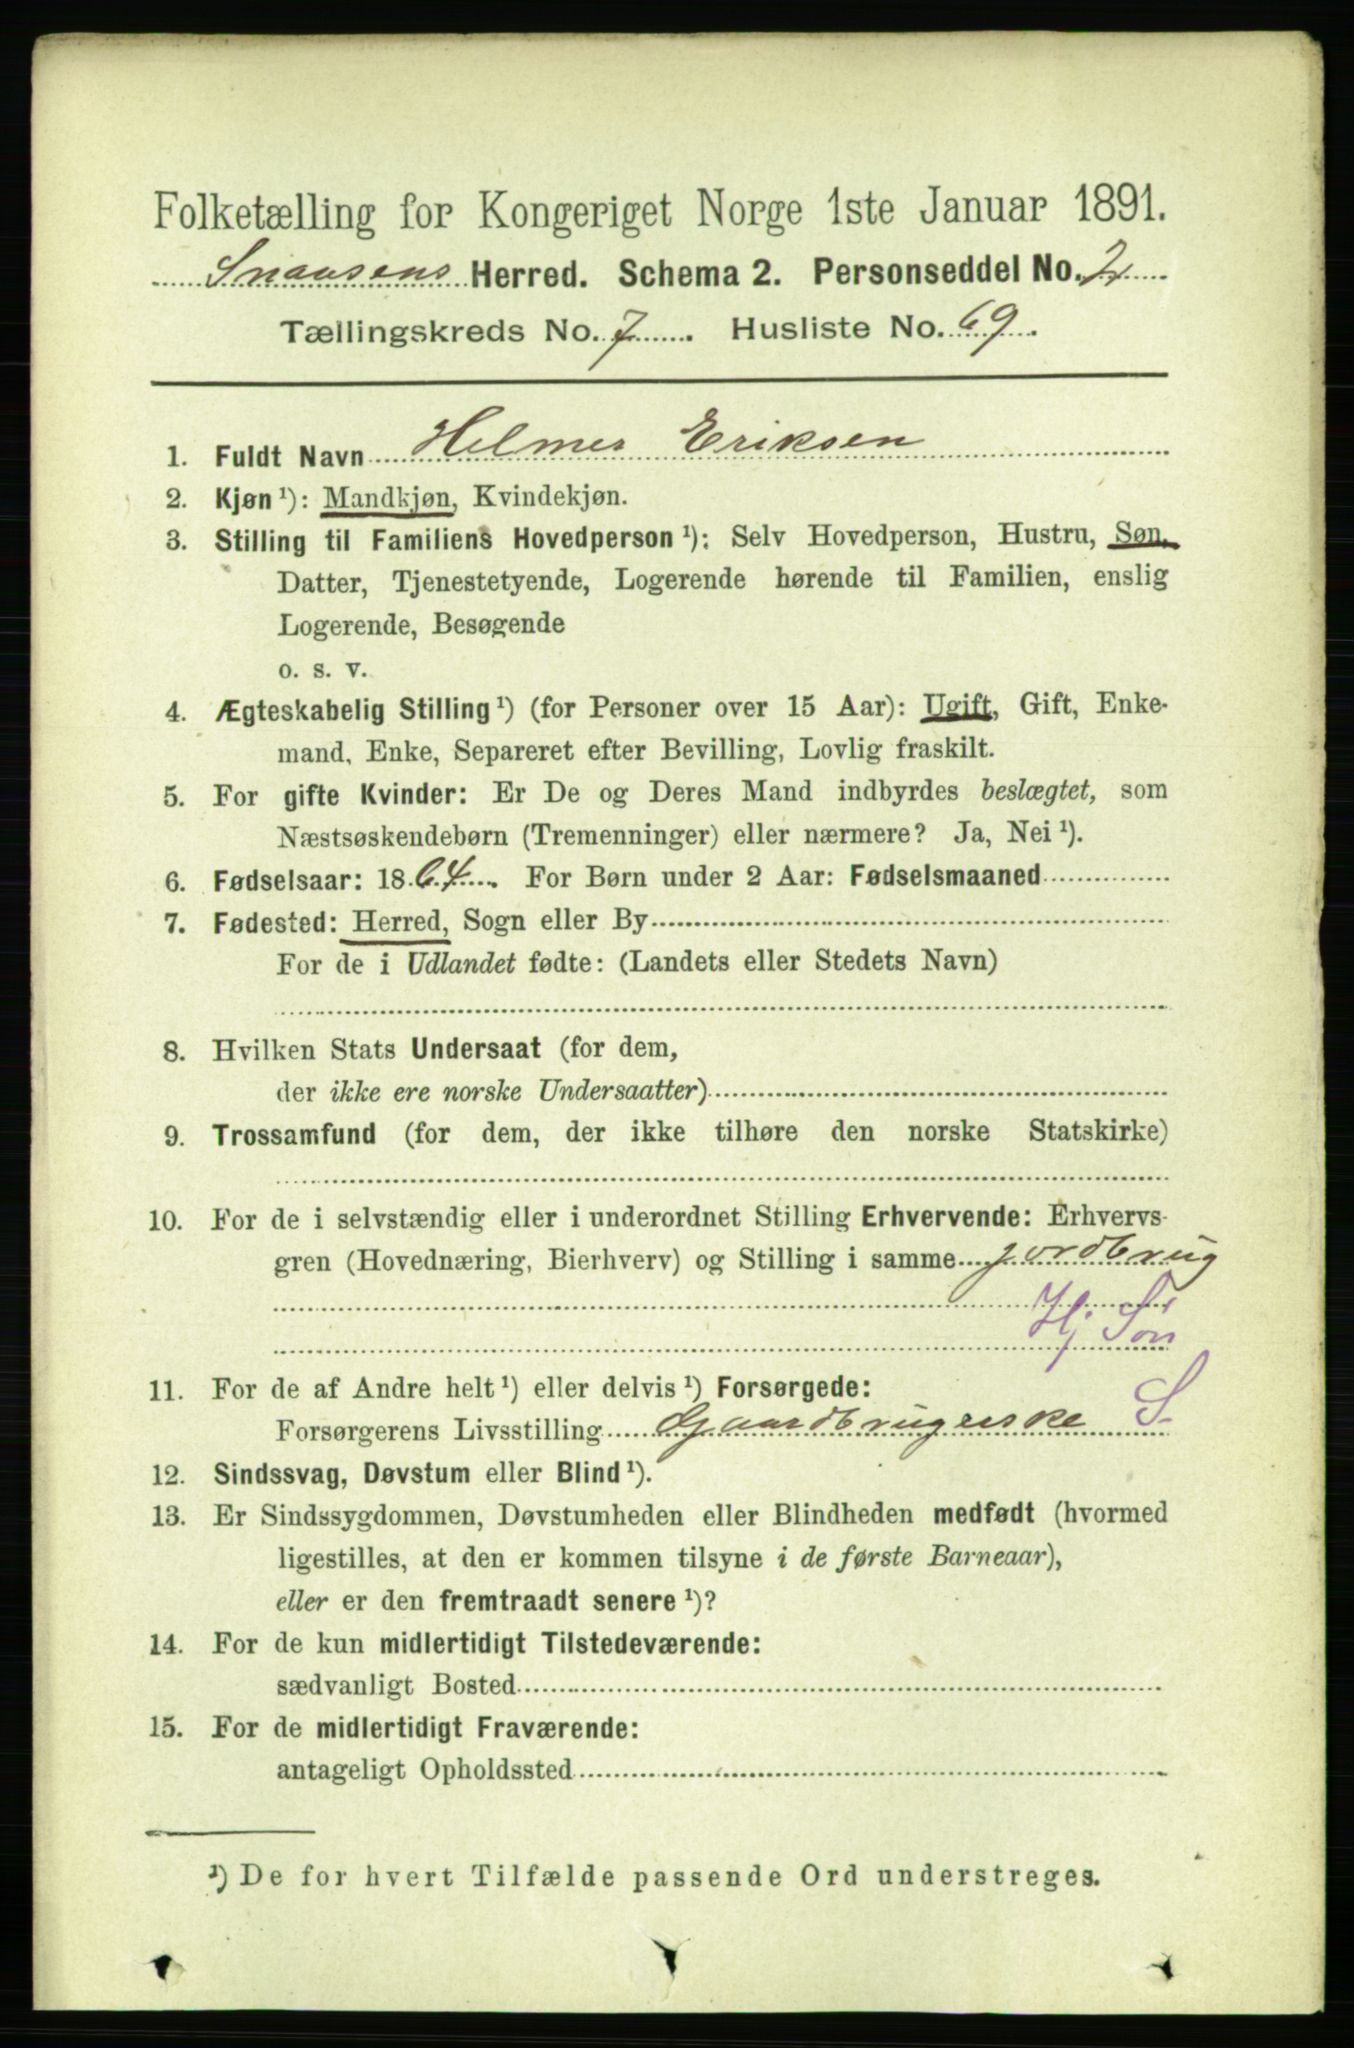 Folketælling for Kongeriget Norge 1ste Januar 1891.
Snaasens Herred. Schema 2. Personseddel No. 2
Tællingskreds No. 7. Husliste No. 69.
1. Fuldt Navn Helmer Eriksen
2. Kjøn ¹): Mandkjøn, Kvindekjøn.
3. Stilling til Familiens Hovedperson ¹): Selv Hovedperson, Hustru, Søn,
Datter, Tjenestetyende, Logerende hørende til Familien, enslig
Logerende, Besøgende
o. s. v.
4. Ægteskabelig Stilling ¹) (for Personer over 15 Aar): Ugift, Gift, Enke-
mand, Enke, Separeret efter Bevilling, Lovlig fraskilt.
5. For gifte Kvinder: Er De og Deres Mand indbyrdes beslægtet, som
Næstsøskendebørn (Tremenninger) eller nærmere? Ja, Nei ¹).
6. Fødselsaar: 1864. For Børn under 2 Aar: Fødselsmaaned
7. Fødested: Herred, Sogn eller By
For de i Udlandet fødte: (Landets eller Stedets Navn)
8. Hvilken Stats Undersaat (for dem,
der ikke ere norske Undersaatter)
9. Trossamfund (for dem, der ikke tilhøre den norske Statskirke)
10. For de i selvstændig eller i underordnet Stilling Erhvervende: Erhvervs-
gren (Hovednæring, Bierhverv) og Stilling i samme jordbrug
Hj Søn
11. For de af Andre helt ¹) eller delvis ¹) Forsørgede:
Forsørgerens Livsstilling Gaardbrugerske S
12. Sindssvag, Døvstum eller Blind ¹).
13. Er Sindssygdommen, Døvstumheden eller Blindheden medfødt (hvormed
ligestilles, at den er kommen tilsyne i de første Barneaar),
eller er den fremtraadt senere ¹)?
14. For de kun midlertidigt Tilstedeværende:
sædvanligt Bosted
15. For de midlertidigt Fraværende:
antageligt Opholdssted
¹) De for hvert Tilfælde passende Ord understreges.